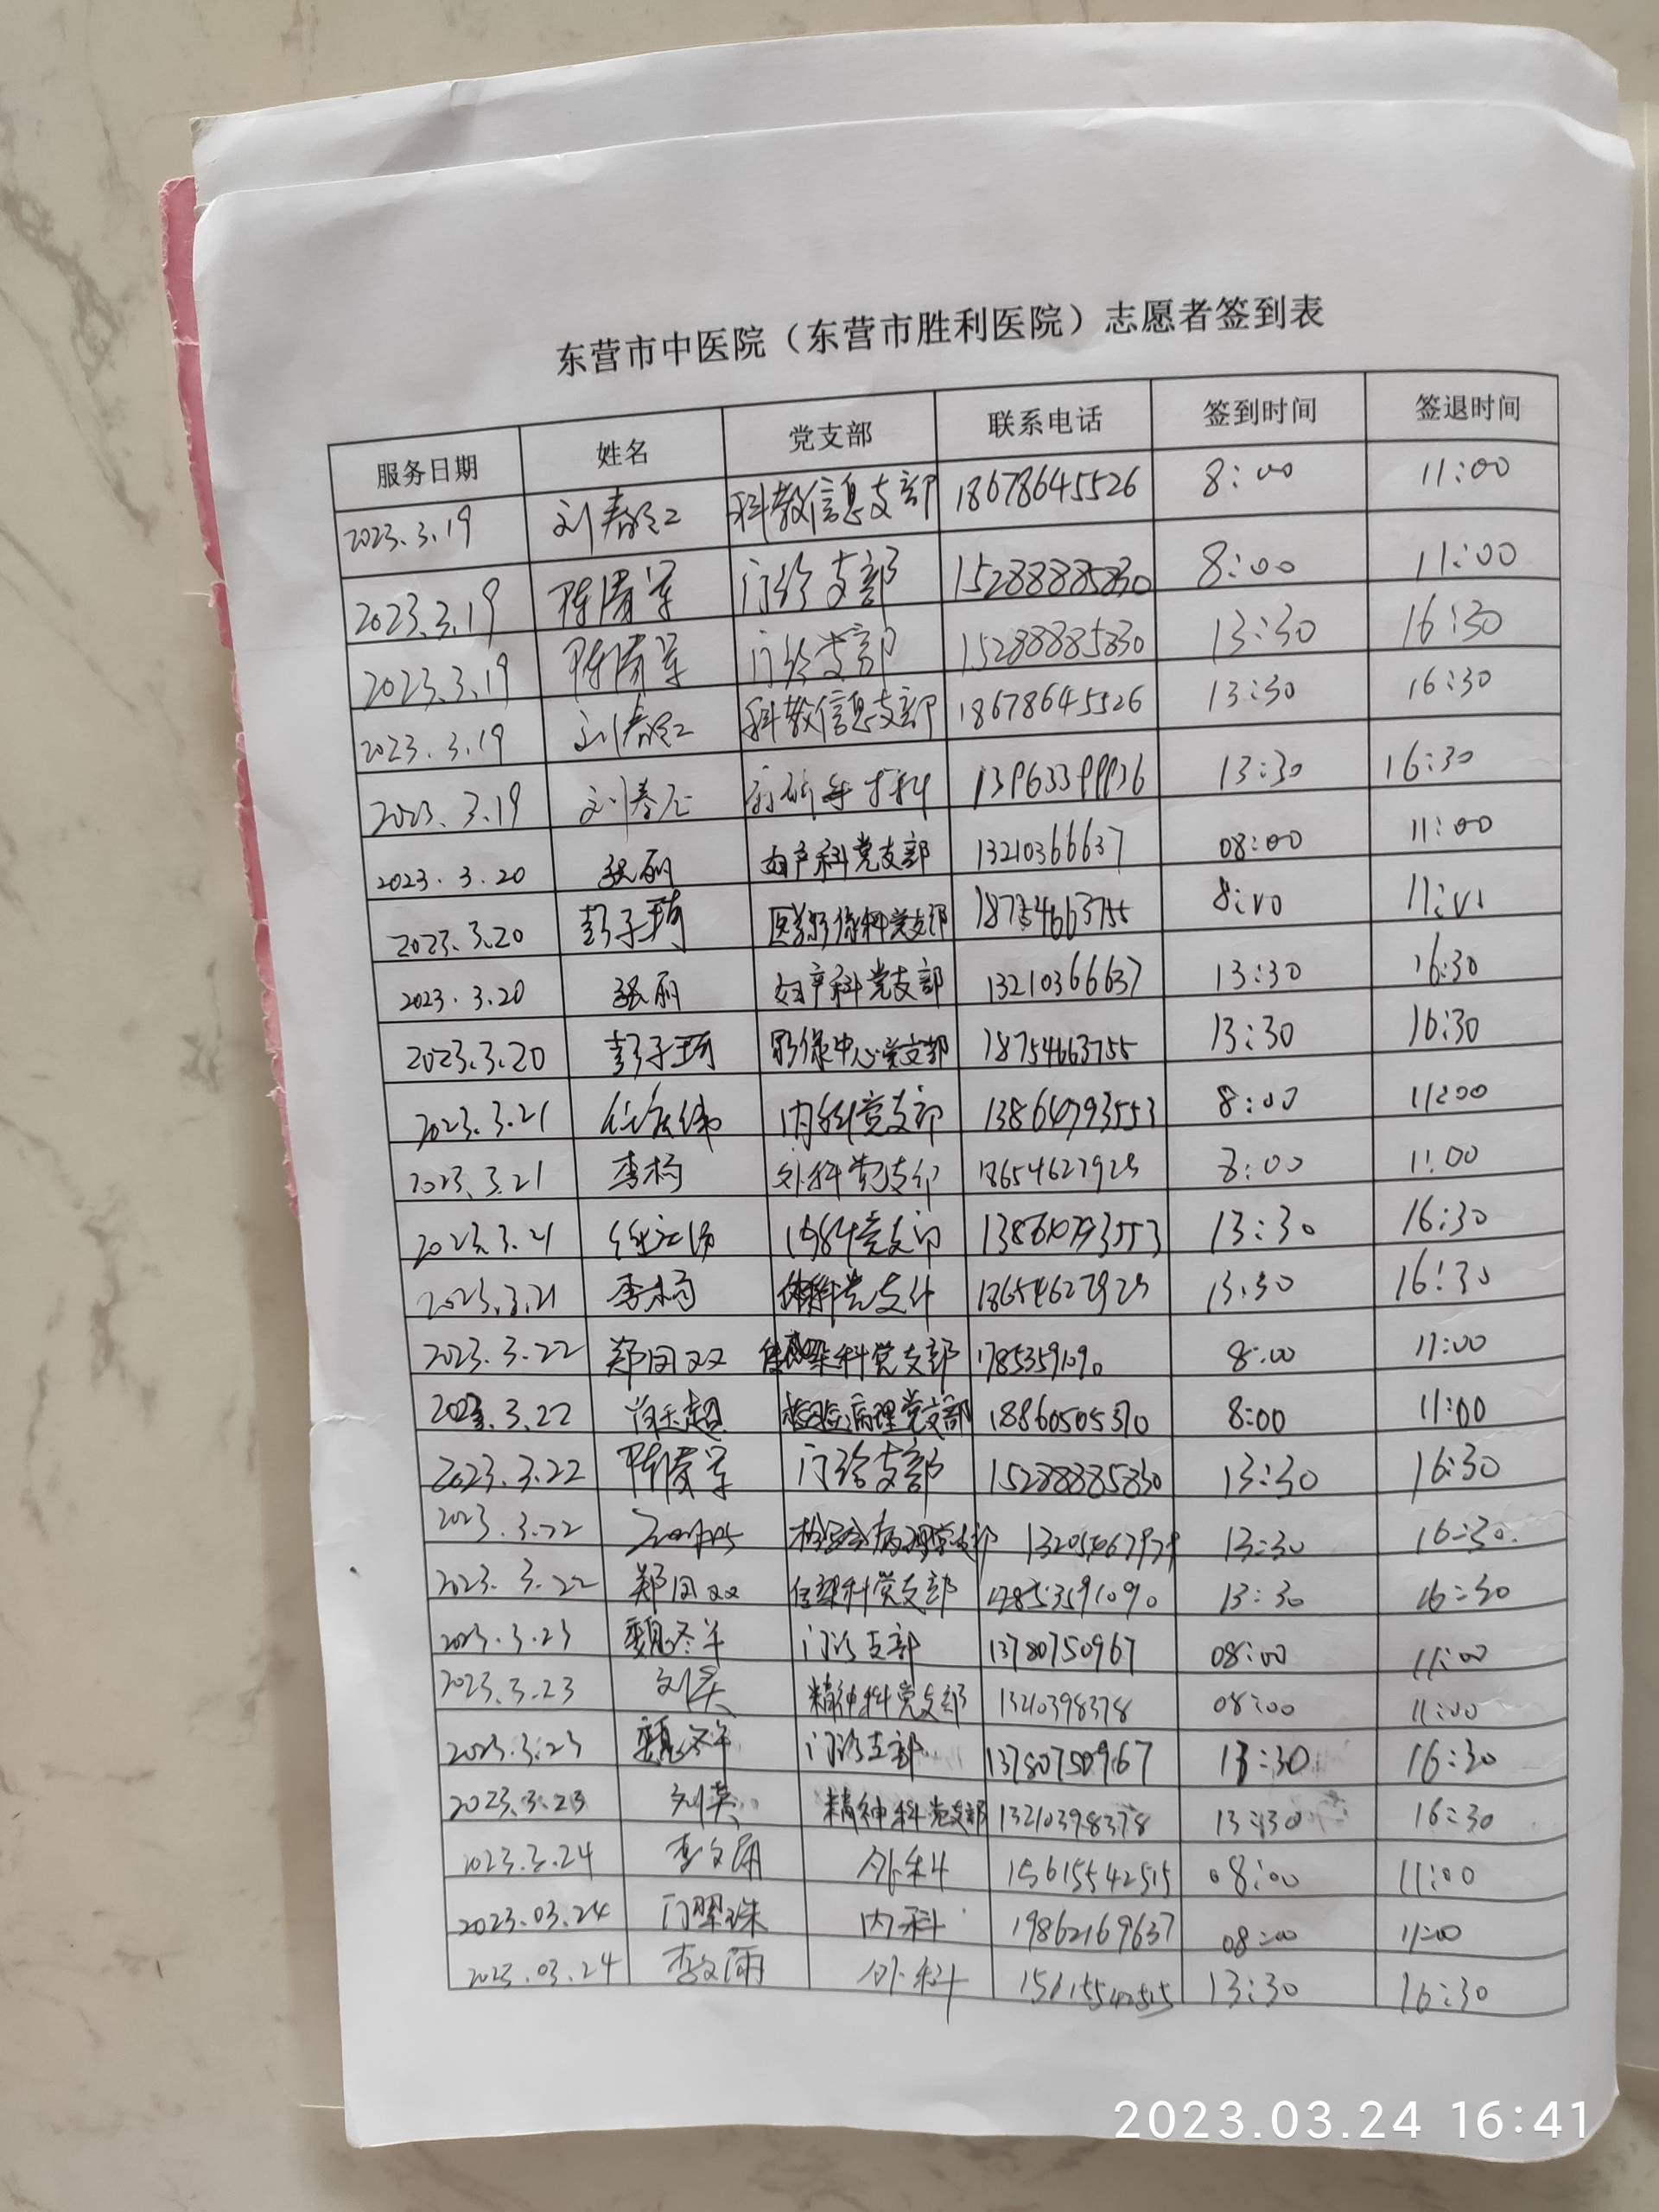 东营市中医院（东营市胜利医院）志愿者签到表
服务日期 姓名 党支部 联系电话 签到时间 签退时间
2023.3.19 刘春红 科教信息支部 18678645526 8:00 11:00
2023.3.19 门诊支部 15288885830 8:00 11:00
2023.3.19 门诊支部 15288885830 13:30 16:30
2023.3.19 刘春红 科教信息支部 18678645526 13:30 16:30
2023.3.19 13:30 16:30
2023.3.20 张丽 妇产科党支部 13210366637 08:00 11:00
2023.3.20 彭子琦 医学影像科党支部 18754663755 8:00 11:00
2023.3.20 张丽 妇产科党支部 13210366637 13:30 16:30
2023.3.20 彭子琦 影像中心党支部 18754663755 13:30 16:30
2023.3.21 内科党支部 8:00 11:00
2023.3.21 李杨 外科党支部 8:00 11:00
2023.3.21 内科党支部 13:30 16:30
2023.3.21 李杨 党支部 13:30 16:30
2023.3.22 郑凤双 染科党支部 8:00 11:00
2023.3.22 肖玉超 检验病理党支部 18860505370 8:00 11:00
2023.3.22 门诊支部 15288885830 13:30 16:30
2023.3.22 检验病理党支部 13:30 16:30.
2023.3.22 郑凤双 染科党支部 17853591090 13:30 16:30
2023.3.23 魏冬华 门诊支部 13780750967 08:00 11:00
2023.3.23 刘英 精神科党支部 08:00 11:00
2023.3.23 魏冬华 门诊支部 13780750967 13:30 16:30
2023.3.23 刘英 精神科党支部 13210398378 13:30 16:30
2023.3.24 李文雨 外科 15615542515 08:00 11:00
2023.03.24 门翠珠 内科 19862169637 08:00 11:00
2023.03.24 李文雨 外科 15615542515 13:30 16:30
2023.03.24 16:41